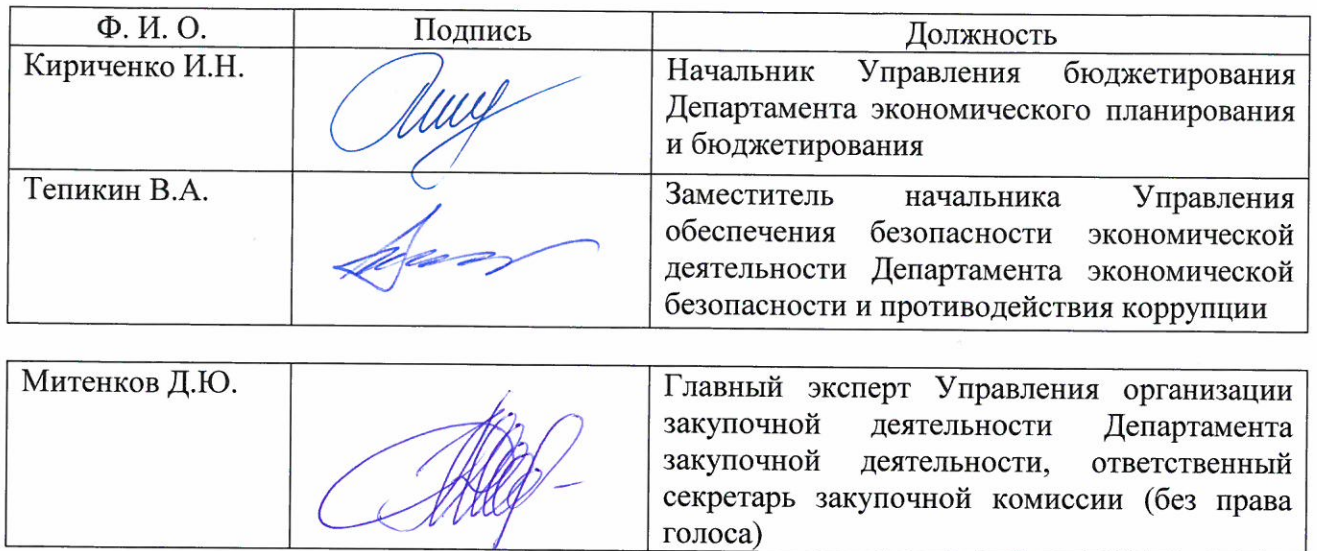 Ф. И. О. Подпись Должность
Кириченко И.Н. Начальник Управления бюджетирования
Департамента экономического планирования
и бюджетирования
Тепикин В.А. Заместитель начальника Управления
обеспечения безопасности экономической
деятельности Департамента экономической
безопасности и противодействия коррупции
Митенков Д.Ю. Главный эксперт Управления организации
закупочной деятельности Департамента
закупочной деятельности, ответственный
секретарь закупочной комиссии (без права
голоса)